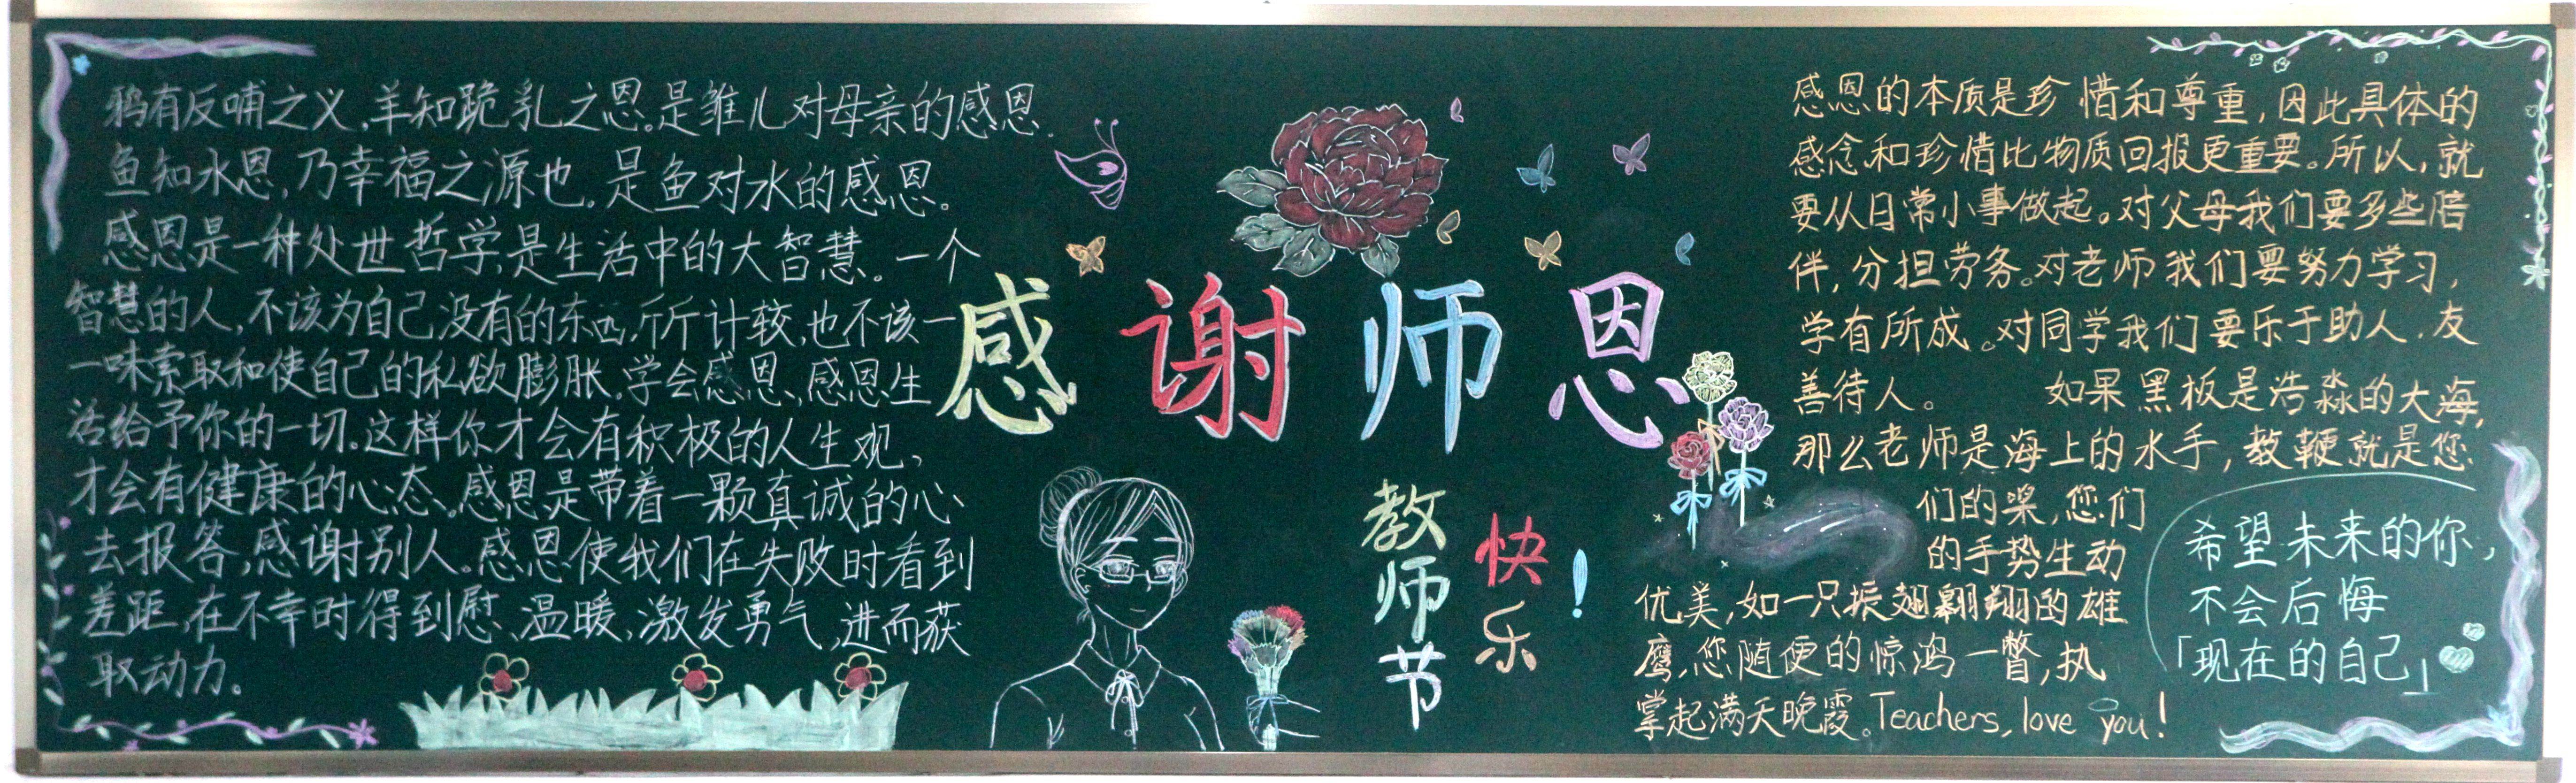 鸦有反哺之义,羊知跪乳之恩。是雏儿对母亲的感恩.
鱼知水恩,乃幸福之源也。是鱼对水的感恩。
感恩是一种处世哲学,是生活中的大智慧。一个
智慧的人,不该为自己没有的东西斤斤计较,也不该一
一味索取和使自己的私欲膨胀.学会感恩,感恩生
活给予你的一切。这样你才会有积极的人生观、
才会有健康的心态。感恩是带着一颗真诚的心
去报答,感谢别人。感恩使我们在失败时看到
差距,在不幸时得到慰、温暖,激发勇气,进而获
取动力。
感谢师恩
教师节
快乐!
感恩的本质是珍惜和尊重,因此具体的
感念和珍惜比物质回报更重要。所以,就
要从日常小事做起。对父母我们要多些陪
伴,分担劳务。对老师我们要努力学习,
学有所成。对同学我们要乐于助人.友
善待人。 如果黑板是浩淼的大海,
那么老师是海上的水手,教鞭就是您
们的桨,您们
的手势生动
优美,如一只振翅翱翔的雄
鹰,您随便的惊鸿一瞥,执
掌起满天晚霞。Teachers, love you!
希望未来的你,
不会后悔
「现在的自己」